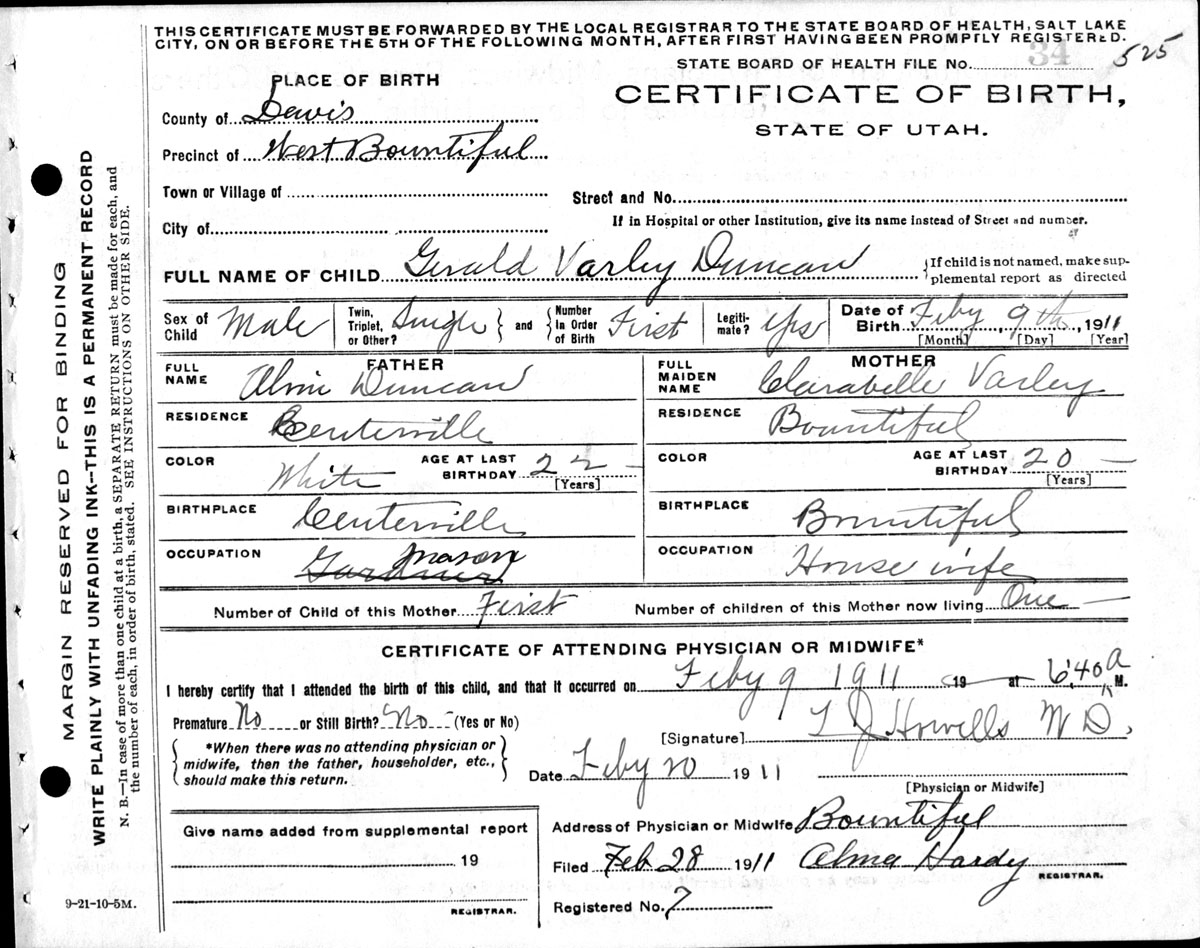 THIS CERTIFICATE MUST BE FORWARDED BY THE LOCAL REGISTRAR TO THE STATE BOARD OF HEALTH, SALT LAKE
CITY, ON OR BEFORE THE 5TH OF THE FOLLOWING MONTH, AFTER FIRST HAVING BEEN PROMPTLY REGISTERED.
STATE BOARD OF HEALTH FILE No. 34 525
PLACE OF BIRTH
CERTIFICATE OF BIRTH,
STATE OF UTAH.
County of Davis
Precinct of West Bountiful
Town or Village of
Street and No.
City of
If in Hospital or other Institution, give its name instead of Street and number.
FULL NAME OF CHILD Gerald Varley Duncan {If child is not named, make sup-
plemental report as directed
Sex of Child Male Twin, Triplet, or Other? Single } and { Number In Order of Birth First Legiti-mate? Yes Date of Birth Feby 9th, 1911
[Month] [Day] [Year]
FATHER MOTHER
FULL NAME Alvin Duncan FULL MAIDEN NAME Clarabelle Varley
RESIDENCE Centerville RESIDENCE Bountiful
COLOR White AGE AT LAST BIRTHDAY 22 [Years] COLOR AGE AT LAST BIRTHDAY 20 [Years]
BIRTHPLACE Centerville BIRTHPLACE Bountiful
OCCUPATION Gardner Mason OCCUPATION House wife
Number of Child of this Mother First Number of children of this Mother now living One
CERTIFICATE OF ATTENDING PHYSICIAN OR MIDWIFE*
I hereby certify that I attended the birth of this child, and that it occurred on Feby 9 1911 19 at 6:40 A M.
Premature No or Still Birth? No (Yes or No)
[Signature] L J Howells M D.
{*When there was no attending physician or
midwife, then the father, householder, etc.,
should make this return.}
Date Feby 20 1911
[Physician or Midwife]
Give name added from supplemental report
19
REGISTRAR.
Address of Physician or Midwife Bountiful
Filed Feb 28 1911 Alma Hardy
REGISTRAR.
Registered No. 7
9-21-10-5M.
MARGIN RESERVED FOR BINDING
WRITE PLAINLY WITH UNFADING INK--THIS IS A PERMANENT RECORD
N. B.—In case of more than one child at a birth, a SEPARATE RETURN must be made for each, and
the number of each, in order of birth, stated. SEE INSTRUCTIONS ON OTHER SIDE.